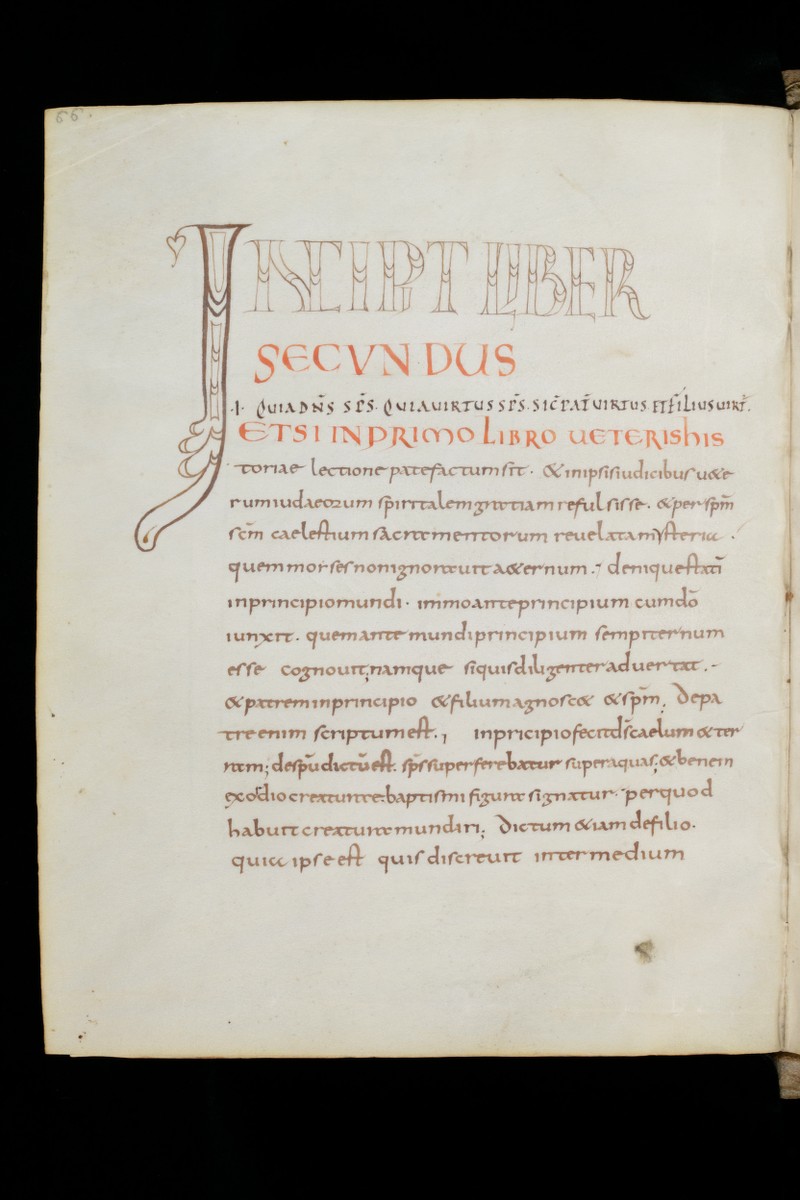 66.
INCIPIT LIBER
SECUNDUS
.I. QUIA DN̄S SP̄S. QUIA UIRTUS SP̄S. SIC PAT̄ UIRTUS ET FILIUS UIRT̄.
ETSI IN PRIMO LIBRO UETERIS hIS
toriae lectione patefactum sit. & in ipsis iudicibus u&e
rum iudaeorum spiritalem gratiam refulsisse. & per sp̄m
sc̄m caelestium sacramentorum reuelata mysteria.
quem morses non ignorauit a&ernum. denique statī
in principio mundi. immo ante principium cum dō
iunxit. quem ante mundi principium sempiternum
esse cognouit; namque si quis diligenter aduertat.
& patrem in principio & filium agnosc& & sp̄m. De pa
tre enim scriptum est., in pricipio fecit d̄s caelum & ter
ram; de spū dictū est. sp̄s superferebatur super aquas; & bene in
exordio creaturae baptismi figura signatur. per quod
habuit creatura mundiri; Dictum &iam de filio.
quia ipse est qui discreuit inter medium